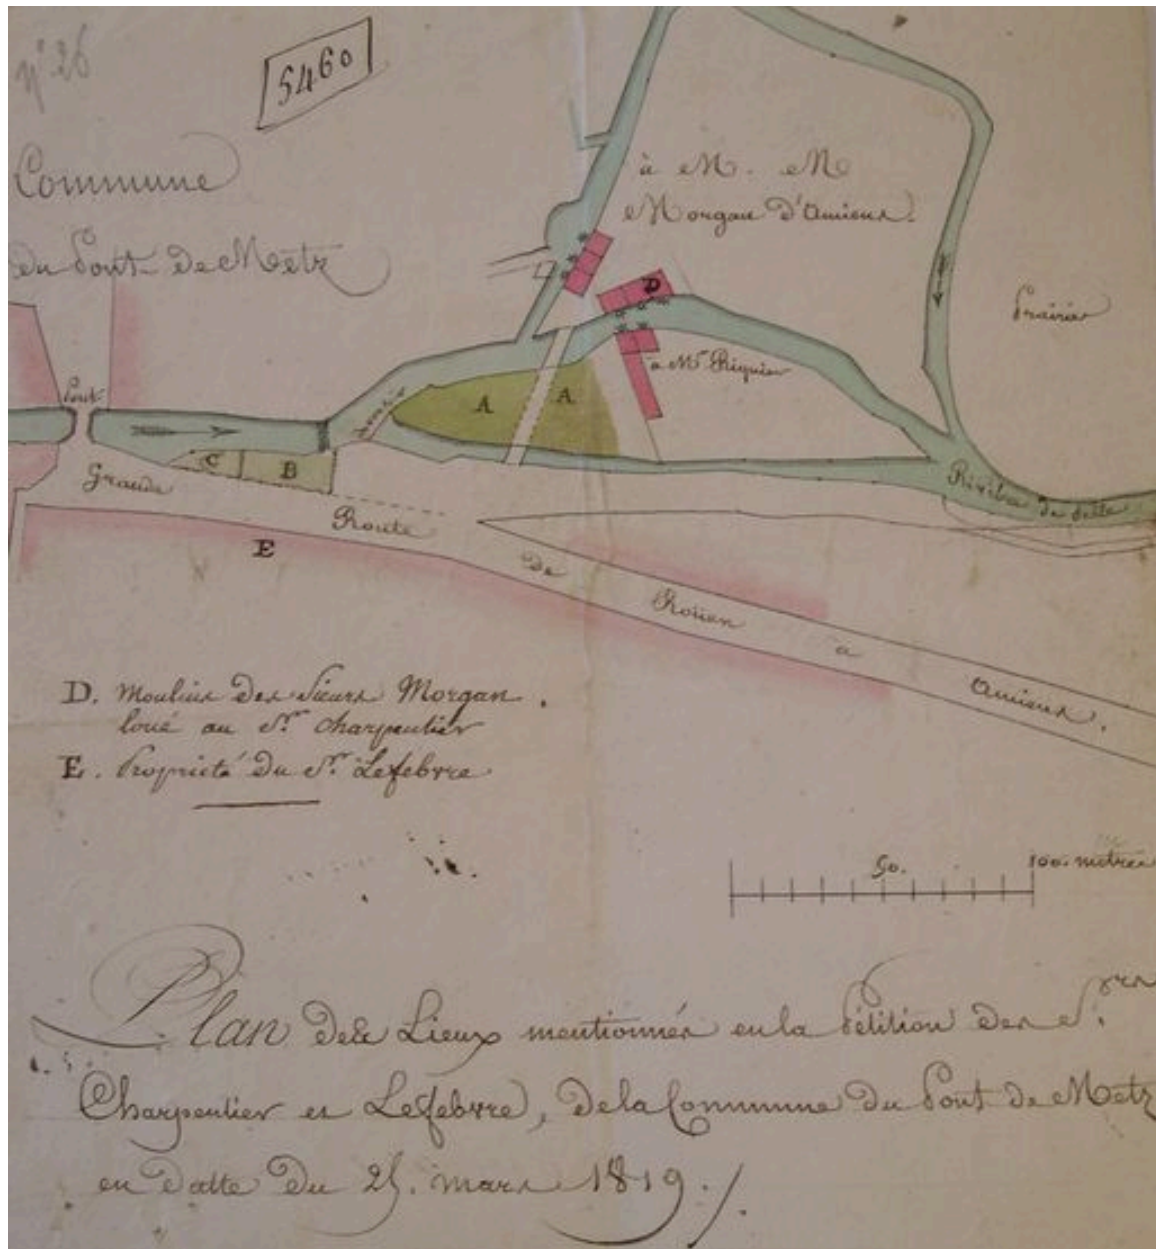 n° 26
5460
Commune
du Pont de Metz
à M. M
Morgan d'Amiens.
Prairies
D
à Mr. Riquier
Pont
A
A
C
B
Grande
Route
de
Rouen
à
Amiens.
Rivière de Selle
E
D. Moulins des Sieurs Morgan.
loué au Sr. Charpentier
E. Propriété du Sr. Lefebvre
50.
100. mètres
Plan des Lieux mentionnés en la Pétition des Srs.
Charpentier et Lefebvre, de la Commune du Pont de Metz
en datte du 25. mars 1819./.